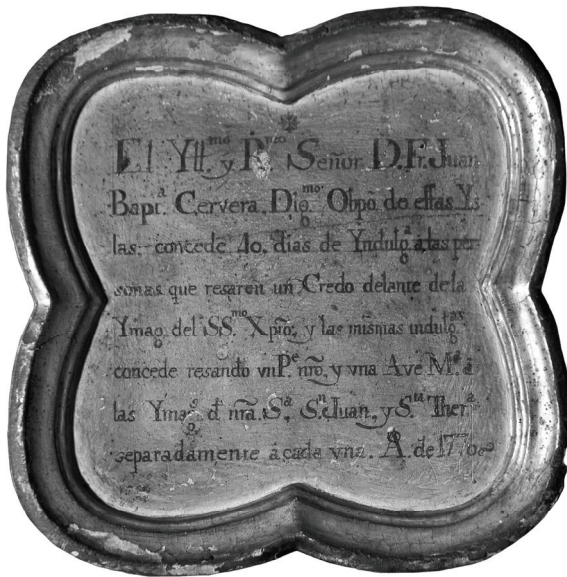 ✠
El Yll.mo y R.mo Señor D. Fr. Juan
Bapt.a Cervera, Dig.mo Obpõ de essas Ys
las, concede 40, dias de Yndulg.a á las per
sonas que resaren un Credo delante de la
Ymag. del SS.mo Xpto, y las mismas indulg.as
concede resando vn P.e nrõ, y vna Ave M.a á
las Ymag.s d nrã. S.a, S.n Juan, y S.ta Ther.a
separadamente á cada vna. A. de 1770